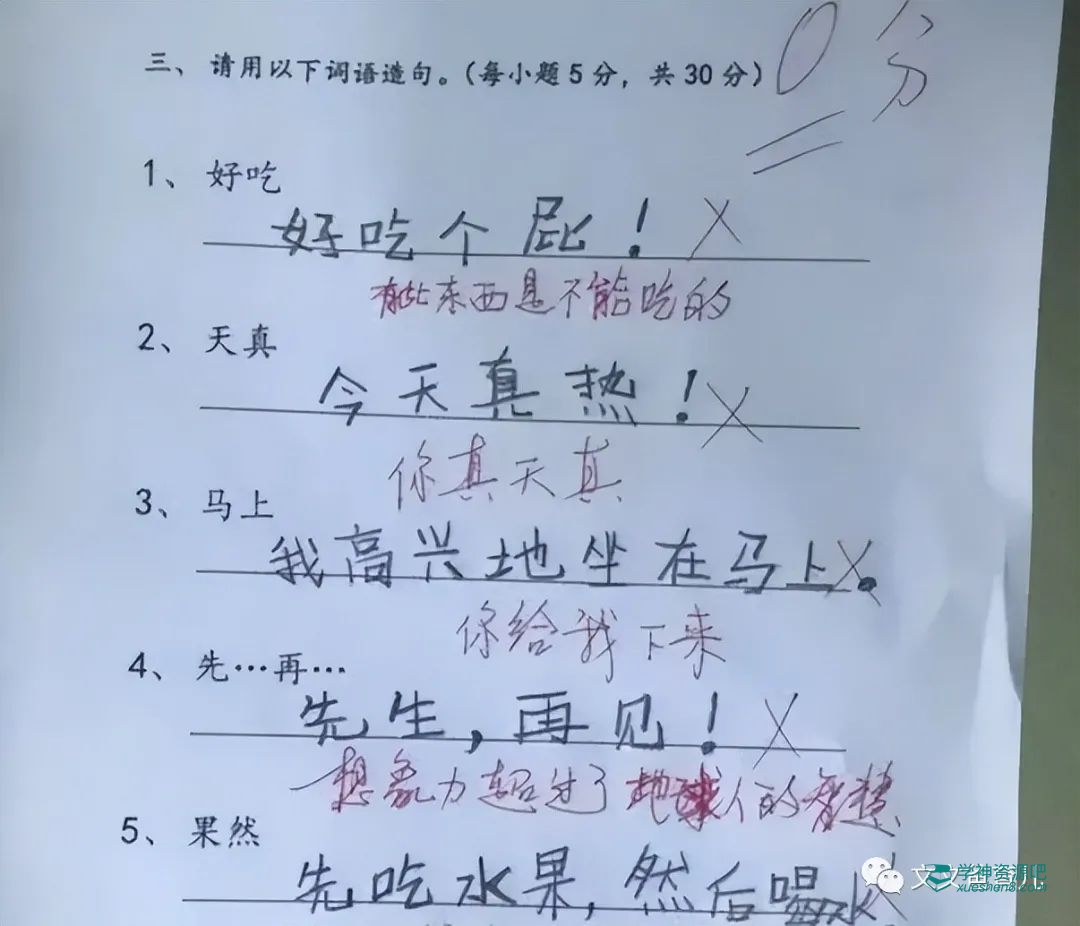 三、请用以下词语造句。(每小题5分，共30分)
0分
1、好吃
好吃个屁！
有些东西是不能吃的
2、天真
今天真热！
你真天真
3、马上
我高兴地坐在马上。
你给我下来
4、先…再…
先生，再见！
想象力超过了地球人的智慧
5、果然
先吃水果，然后喝水
学神资源吧
xueshen8.com